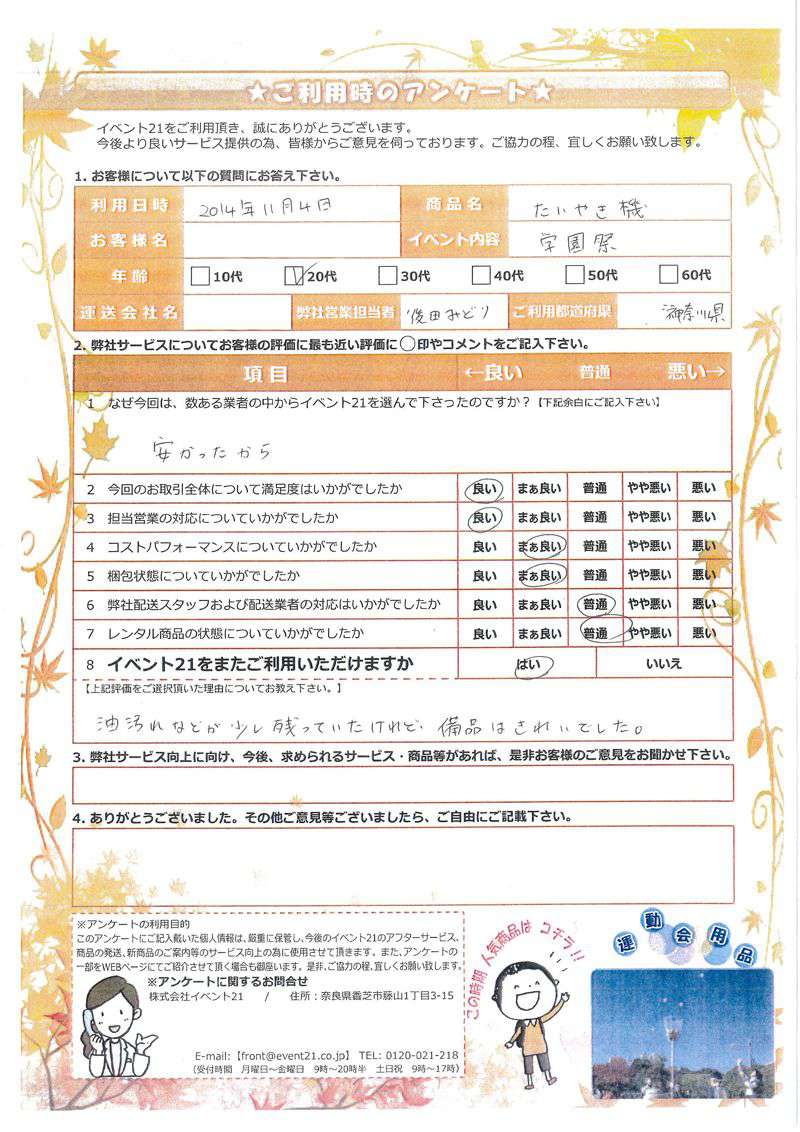 ★ご利用時のアンケート★
イベント21をご利用頂き、誠にありがとうございます。
今後より良いサービス提供の為、皆様からご意見を伺っております。ご協力の程、宜しくお願い致します。
1. お客様について以下の質問にお答え下さい。
利用日時 2014年11月4日 商品名 たいやき機
お客様名 イベント内容 学園祭
年齢 10代 20代 30代 40代 50代 60代
運送会社名 弊社営業担当者 後田みどり ご利用都道府県 神奈川県
2. 弊社サービスについてお客様の評価に最も近い評価に◯印やコメントをご記入下さい。
項目 ←良い 普通 悪い→
1 なぜ今回は、数ある業者の中からイベント21を選んで下さったのですか？【下記余白にご記入下さい】
安かったから
2 今回のお取引全体について満足度はいかがでしたか 良い まぁ良い 普通 やや悪い 悪い
3 担当営業の対応についていかがでしたか 良い まぁ良い 普通 やや悪い 悪い
4 コストパフォーマンスについていかがでしたか 良い まぁ良い 普通 やや悪い 悪い
5 梱包状態についていかがでしたか 良い まぁ良い 普通 やや悪い 悪い
6 弊社配送スタッフおよび配送業者の対応はいかがでしたか 良い まぁ良い 普通 やや悪い 悪い
7 レンタル商品の状態についていかがでしたか 良い まぁ良い 普通 やや悪い 悪い
8 イベント21をまたご利用いただけますか はい いいえ
【上記評価をご選択頂いた理由についてお教え下さい。】
油汚れなどが少し残っていたけれど、備品はきれいでした。
3. 弊社サービス向上に向け、今後、求められるサービス・商品等があれば、是非お客様のご意見をお聞かせ下さい。
4. ありがとうございました。その他ご意見等ございましたら、ご自由にご記載下さい。
※アンケートの利用目的
このアンケートにご記入戴いた個人情報は、厳重に保管し、今後のイベント21のアフターサービス、
商品の発送、新商品のご案内等のサービス向上の為に使用させて頂きます。また、アンケートの
一部をWEBページにてご紹介させて頂く場合も御座います。是非、ご協力の程、宜しくお願い致します。
※アンケートに関するお問合せ
株式会社イベント21 / 住所：奈良県香芝市藤山1丁目3-15
E-mail:【front@event21.co.jp】 TEL: 0120-021-218
（受付時間 月曜日〜金曜日 9時〜20時半 土日祝 9時〜17時）
この時期人気商品はコチラ!!
運動会用品